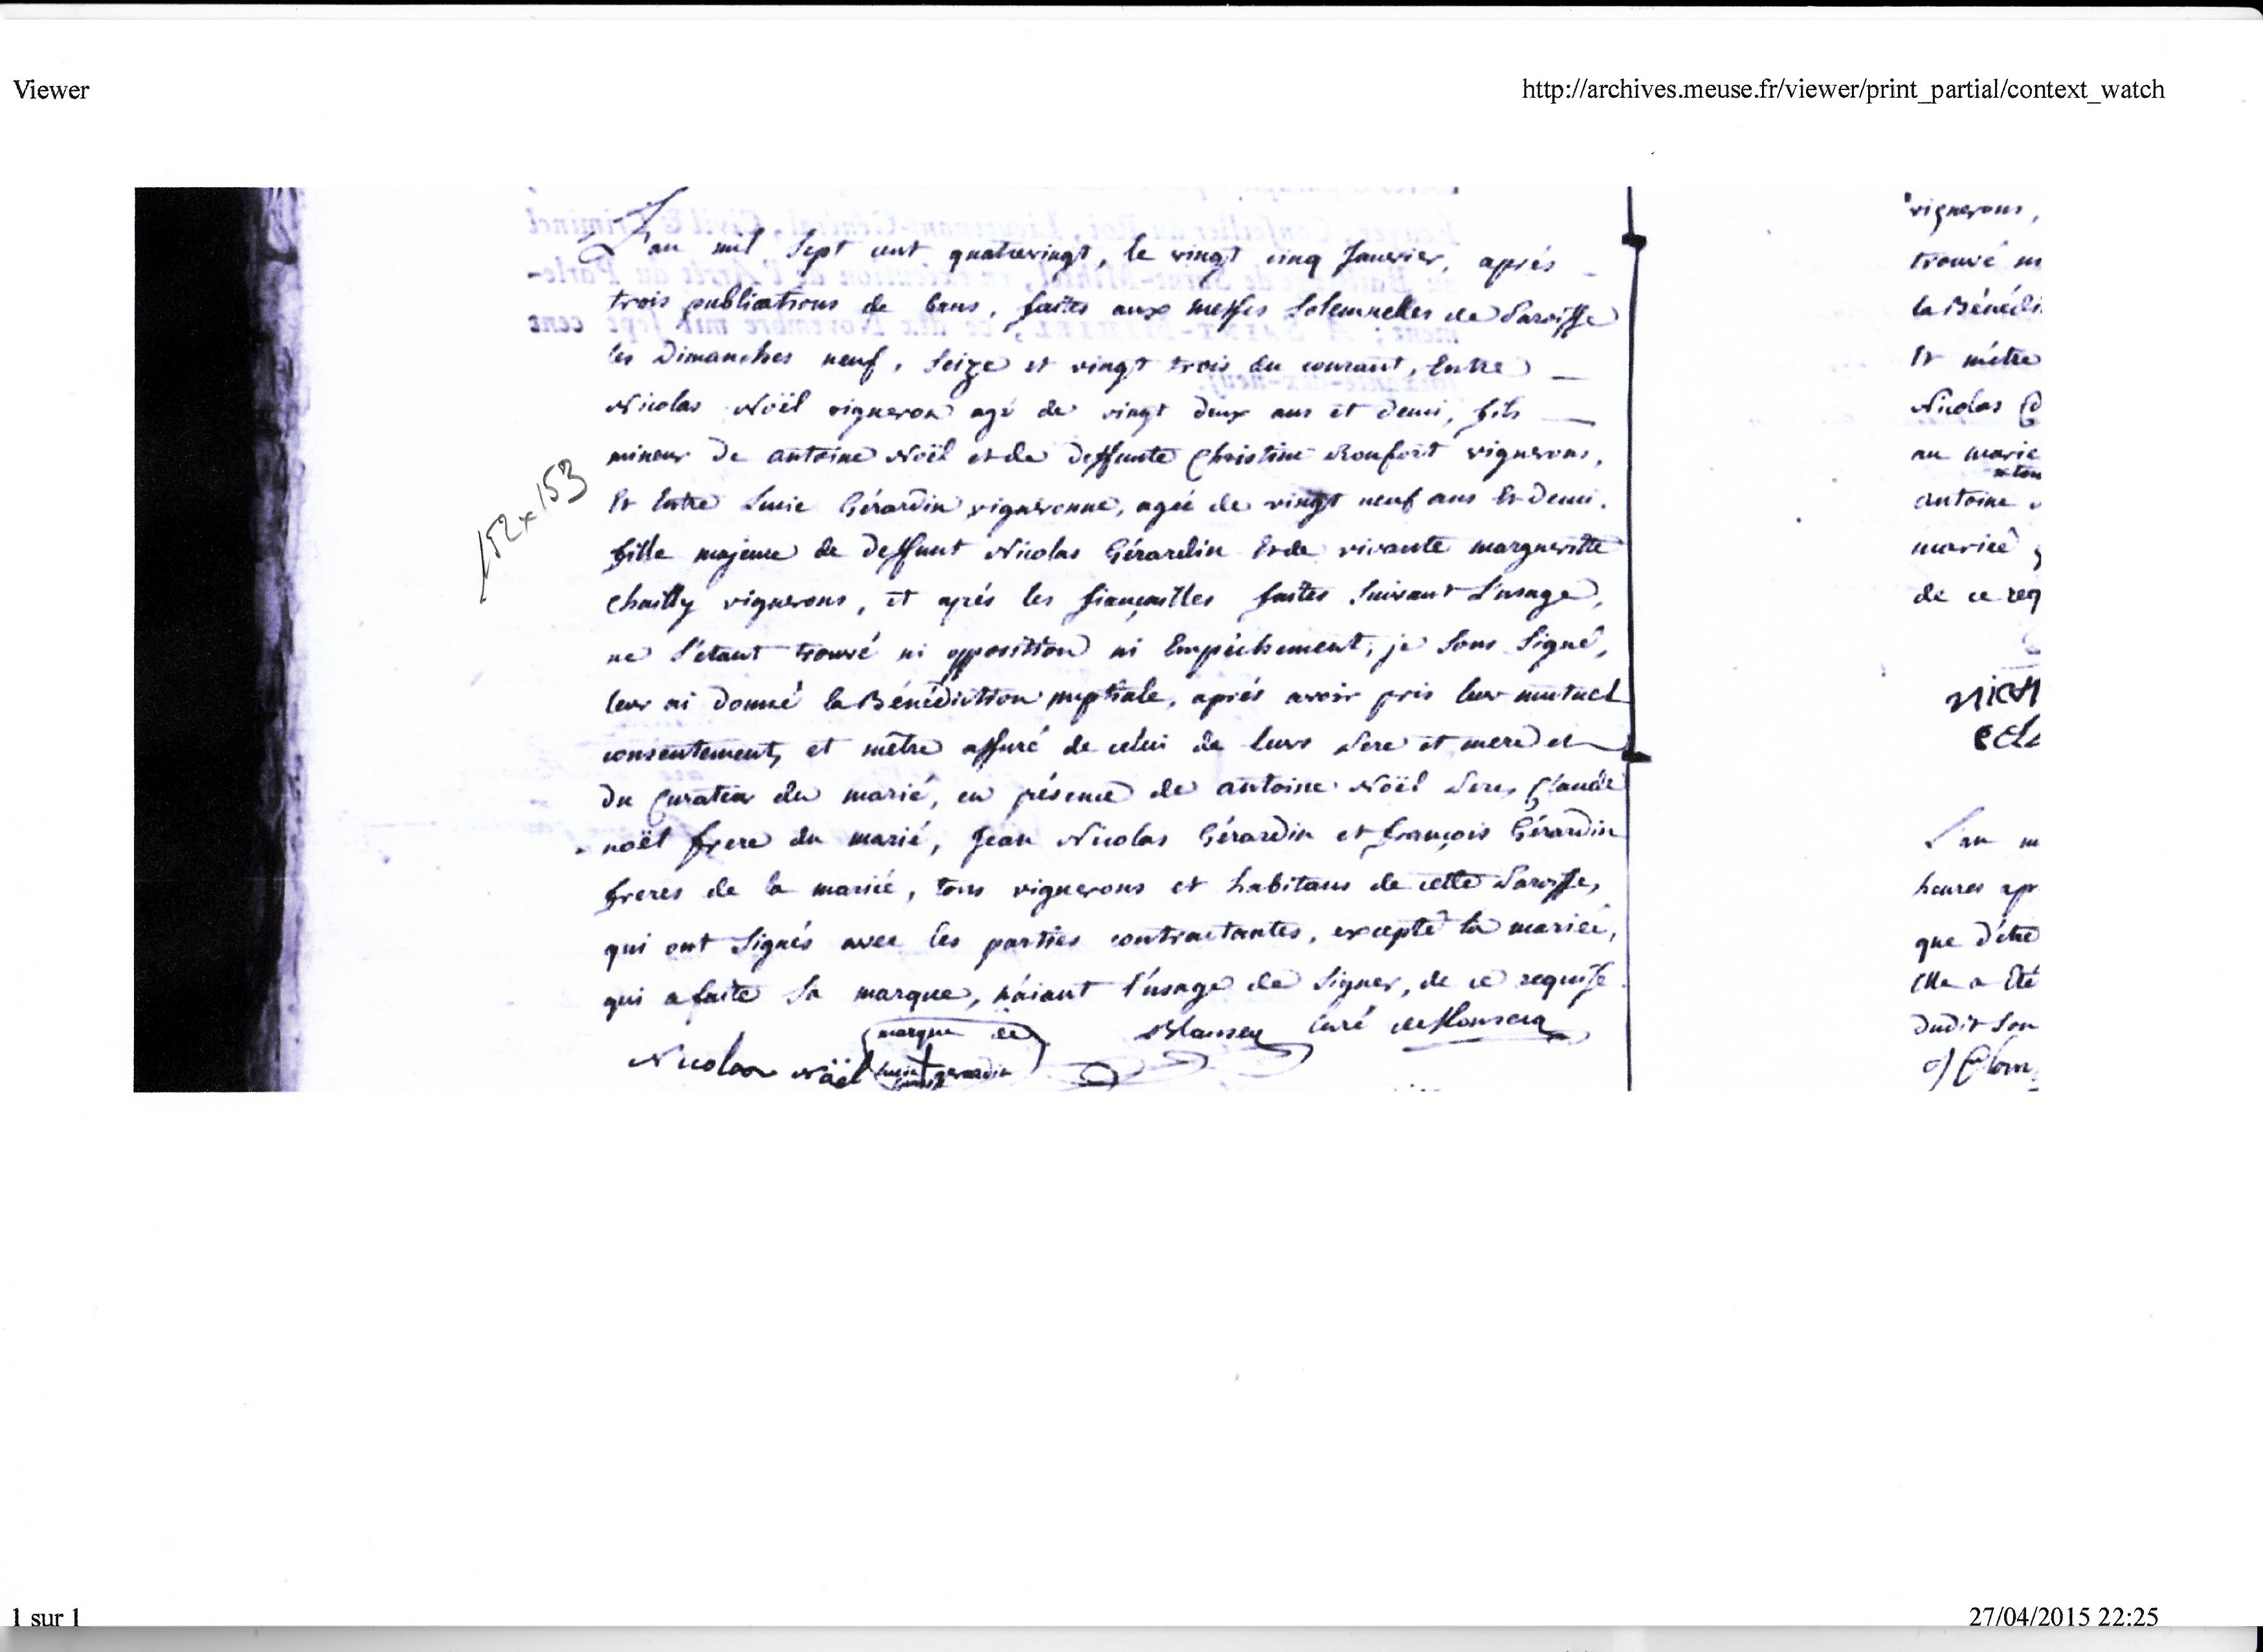 Viewer
http://archives.meuse.fr/viewer/print_partial/context_watch
L'an mil sept cent quatrevingt, le vingt cinq Janvier, après
trois publications de bans, faites aux messes solemnelles de Paroisse
les Dimanches neuf, seize et vingt trois du courant, Entre
Nicolas Noël vigneron agé de vingt deux ans et demi, fils
mineur de antoine Noël et de deffunte Christine Ronfort vignerons,
Et Entre Lucie Gérardin vigneronne, agée de vingt neuf ans Et Demi.
fille majeure de deffunt Nicolas Gérardin Et de vivante margueritte
Chailly vignerons, et après les fiançailles faites suivant L'usage,
ne s'étant trouvé ni opposition ni Empêchement, je sous signé,
leur ai donné la Bénédiction nuptiale, après avoir pris leur mutuel
consentement, et m'être assuré de celui de leurs Pere et mere et
du Curateur du marié, en présence de antoine Noël Pere, Claude
noël frere du marié, Jean Nicolas Gérardin et françois Gérardin
freres de la mariée, tous vignerons et habitans de cette Paroisse,
qui ont signés avec les parties contractantes, excepté la mariée,
qui a faite sa marque, n'aiant l'usage de signer, de ce requise.
marque de
curé de
Nicolas Noël
gerardin
152 x 153
vignerons,
trouvé
la Bénédi
Et m'être
Nicolas
au marié
antoine
mariée
de ce req
L'an
heures
que d'être
Elle a été
dudit son
1 sur 1
27/04/2015 22:25